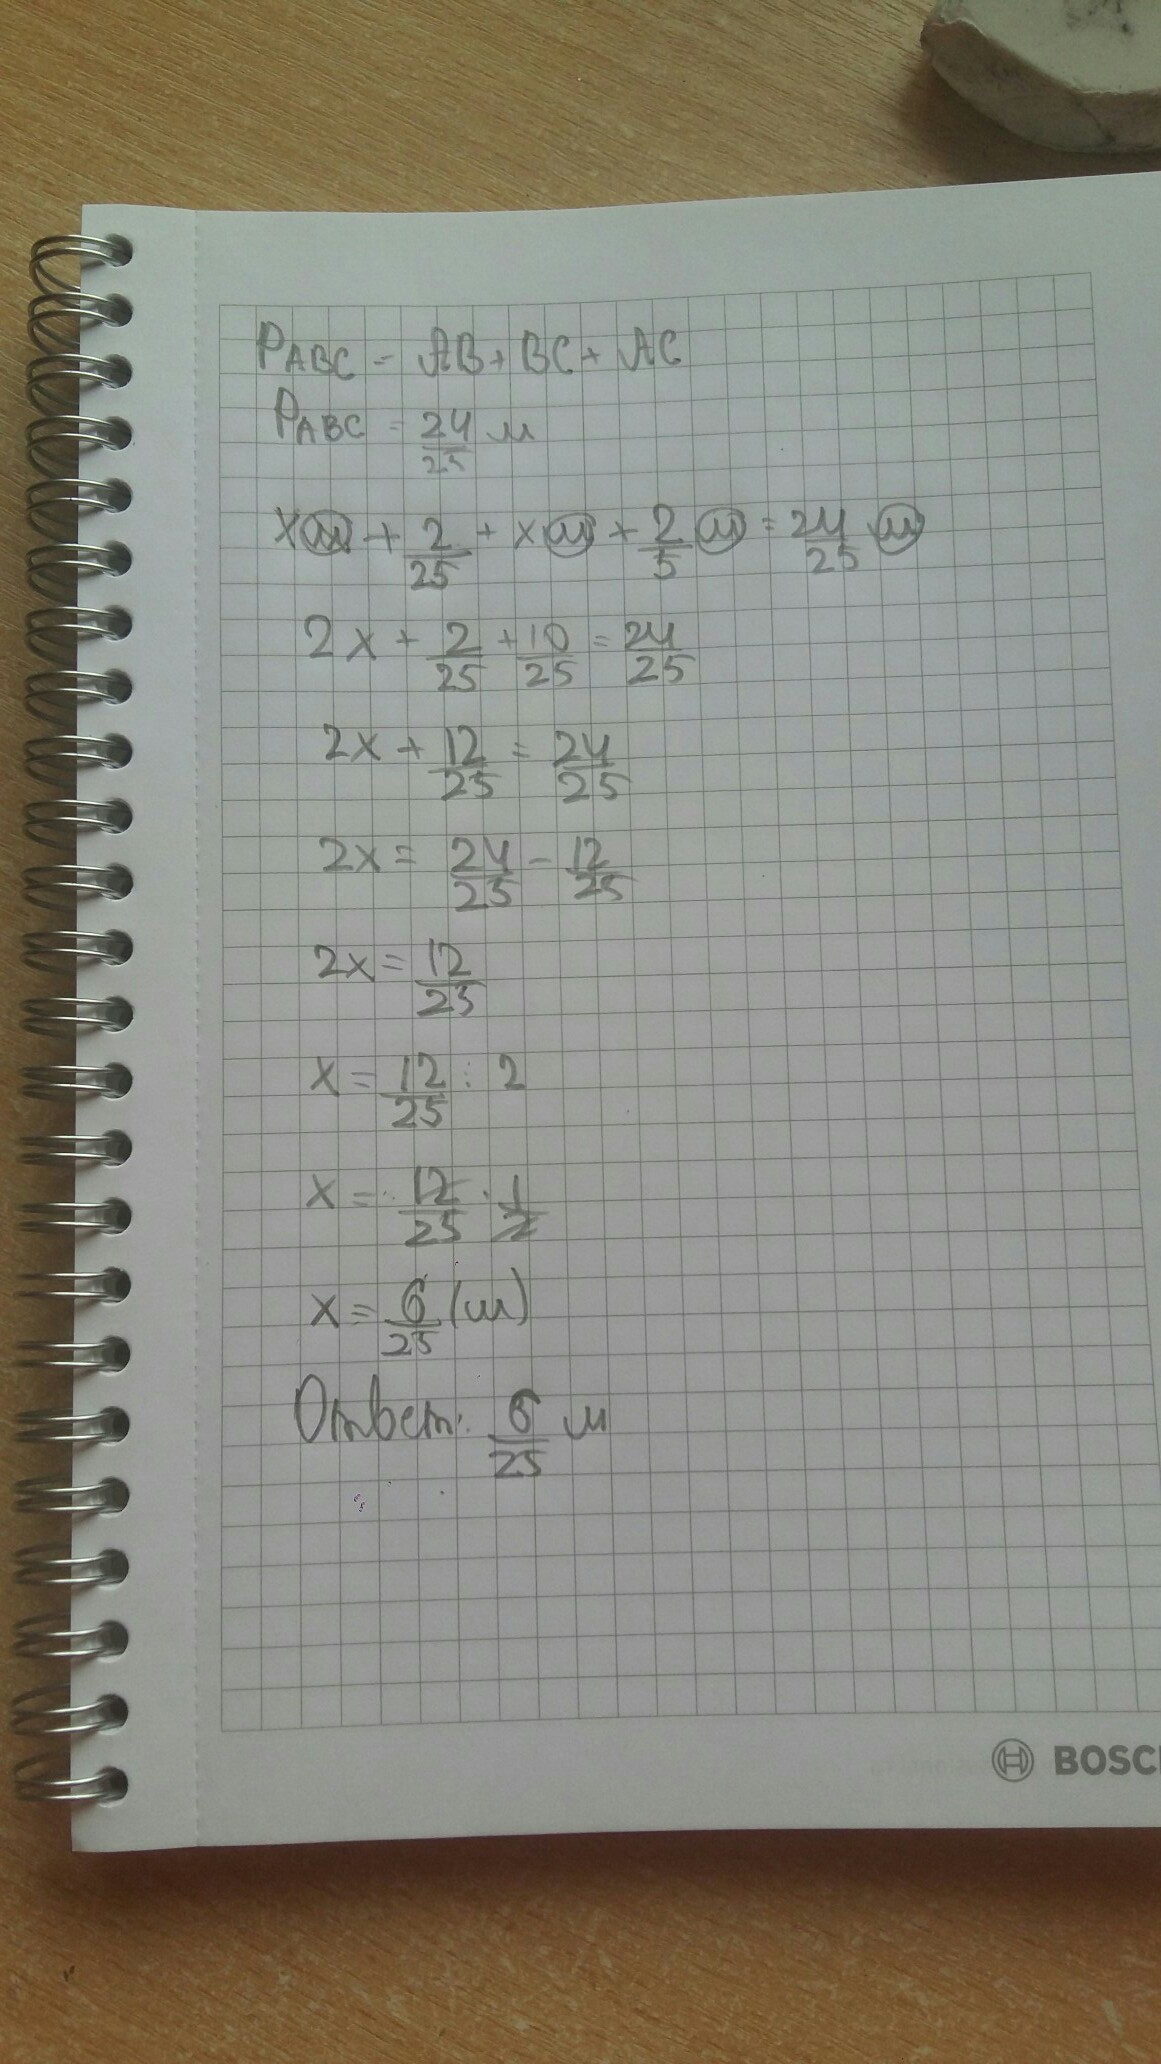 P ABC = AB + BC + AC
P ABC = 24/25 м
x м + 2/25 + x м + 2/5 м = 24/25 м
2x + 2/25 + 10/25 = 24/25
2x + 12/25 = 24/25
2x = 24/25 - 12/25
2x = 12/25
x = 12/25 : 2
x = 12/25 · 1/2
x = 6/25 (м)
Ответ: 6/25 м
BOSC